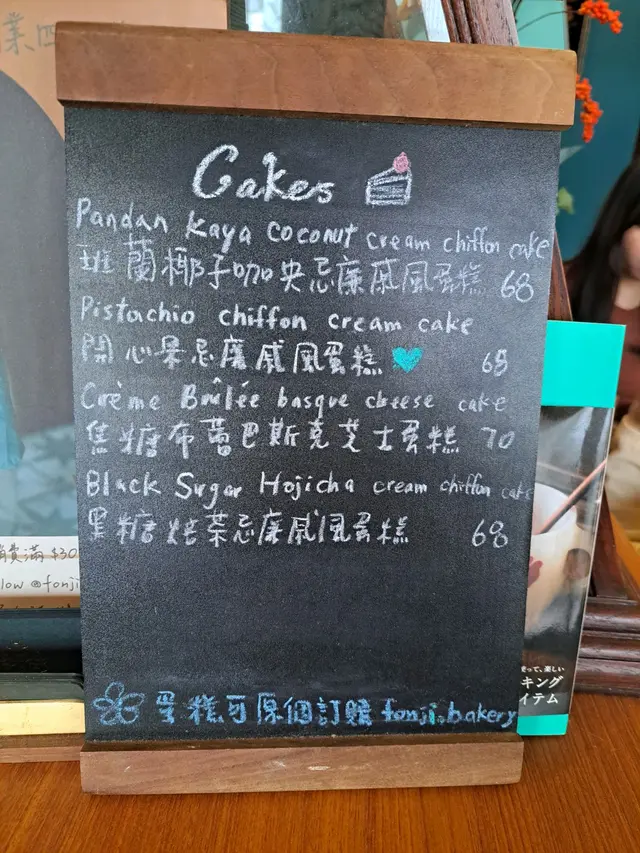 業、四
Cakes
Pandan Kaya coconut cream chiffon cake
班蘭椰子咖央忌廉戚風蛋糕 68
Pistachio chiffon cream cake
開心果忌廉戚風蛋糕 68
Crème Brûlée basque cheese cake
焦糖布蕾巴斯克芝士蛋糕 70
Black Sugar Hojicha cream chiffon cake
黑糖焙茶忌廉戚風蛋糕 68
消費滿 $30
low @fonji
使って、楽しい
キング
イテム
蛋糕可原個訂購 fonji.bakery